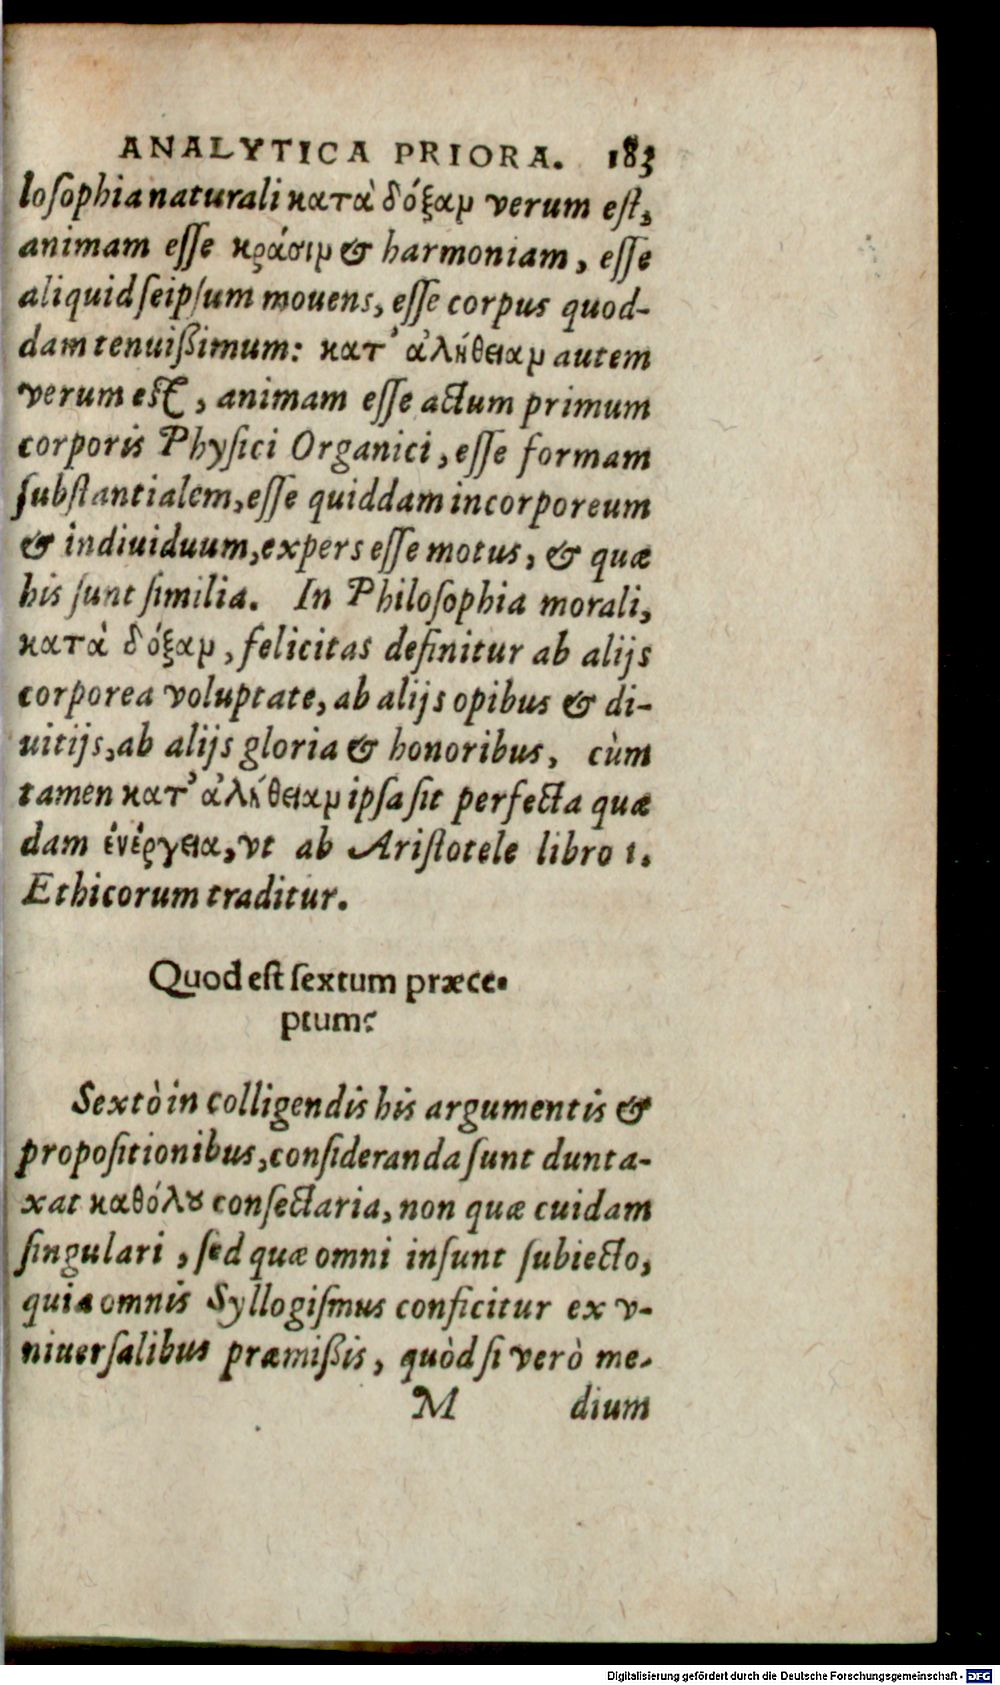 ANALYTICA PRIORA. 183
losophia naturali κατὰ δόξαν verum est,
animam esse κρᾶσιν & harmoniam, esse
aliquid seipsum mouens, esse corpus quod-
dam tenuißimum: κατ᾽ ἀλήθειαν autem
verum est, animam esse actum primum
corporis Physici Organici, esse formam
substantialem, esse quiddam incorporeum
& indiuiduum, expers esse motus, & quæ
his sunt similia. In Philosophia morali,
κατὰ δόξαν, felicitas definitur ab alijs
corporea voluptate, ab alijs opibus & di-
uitijs, ab alijs gloria & honoribus, cùm
tamen κατ᾽ ἀλήθειαν ipsa sit perfecta quæ
dam ἐνέργεια, vt ab Aristotele libro 1.
Ethicorum traditur.
Quod est sextum præce-
ptum?
Sextò in colligendis his argumentis &
propositionibus, consideranda sunt dunta-
xat καθόλȣ consectaria, non quæ cuidam
singulari, sed quæ omni insunt subiecto,
quia omnis Syllogismus conficitur ex v-
niuersalibus præmißis, quòd si verò me-
M dium
Digitalisierung gefördert durch die Deutsche Forschungsgemeinschaft - DFG